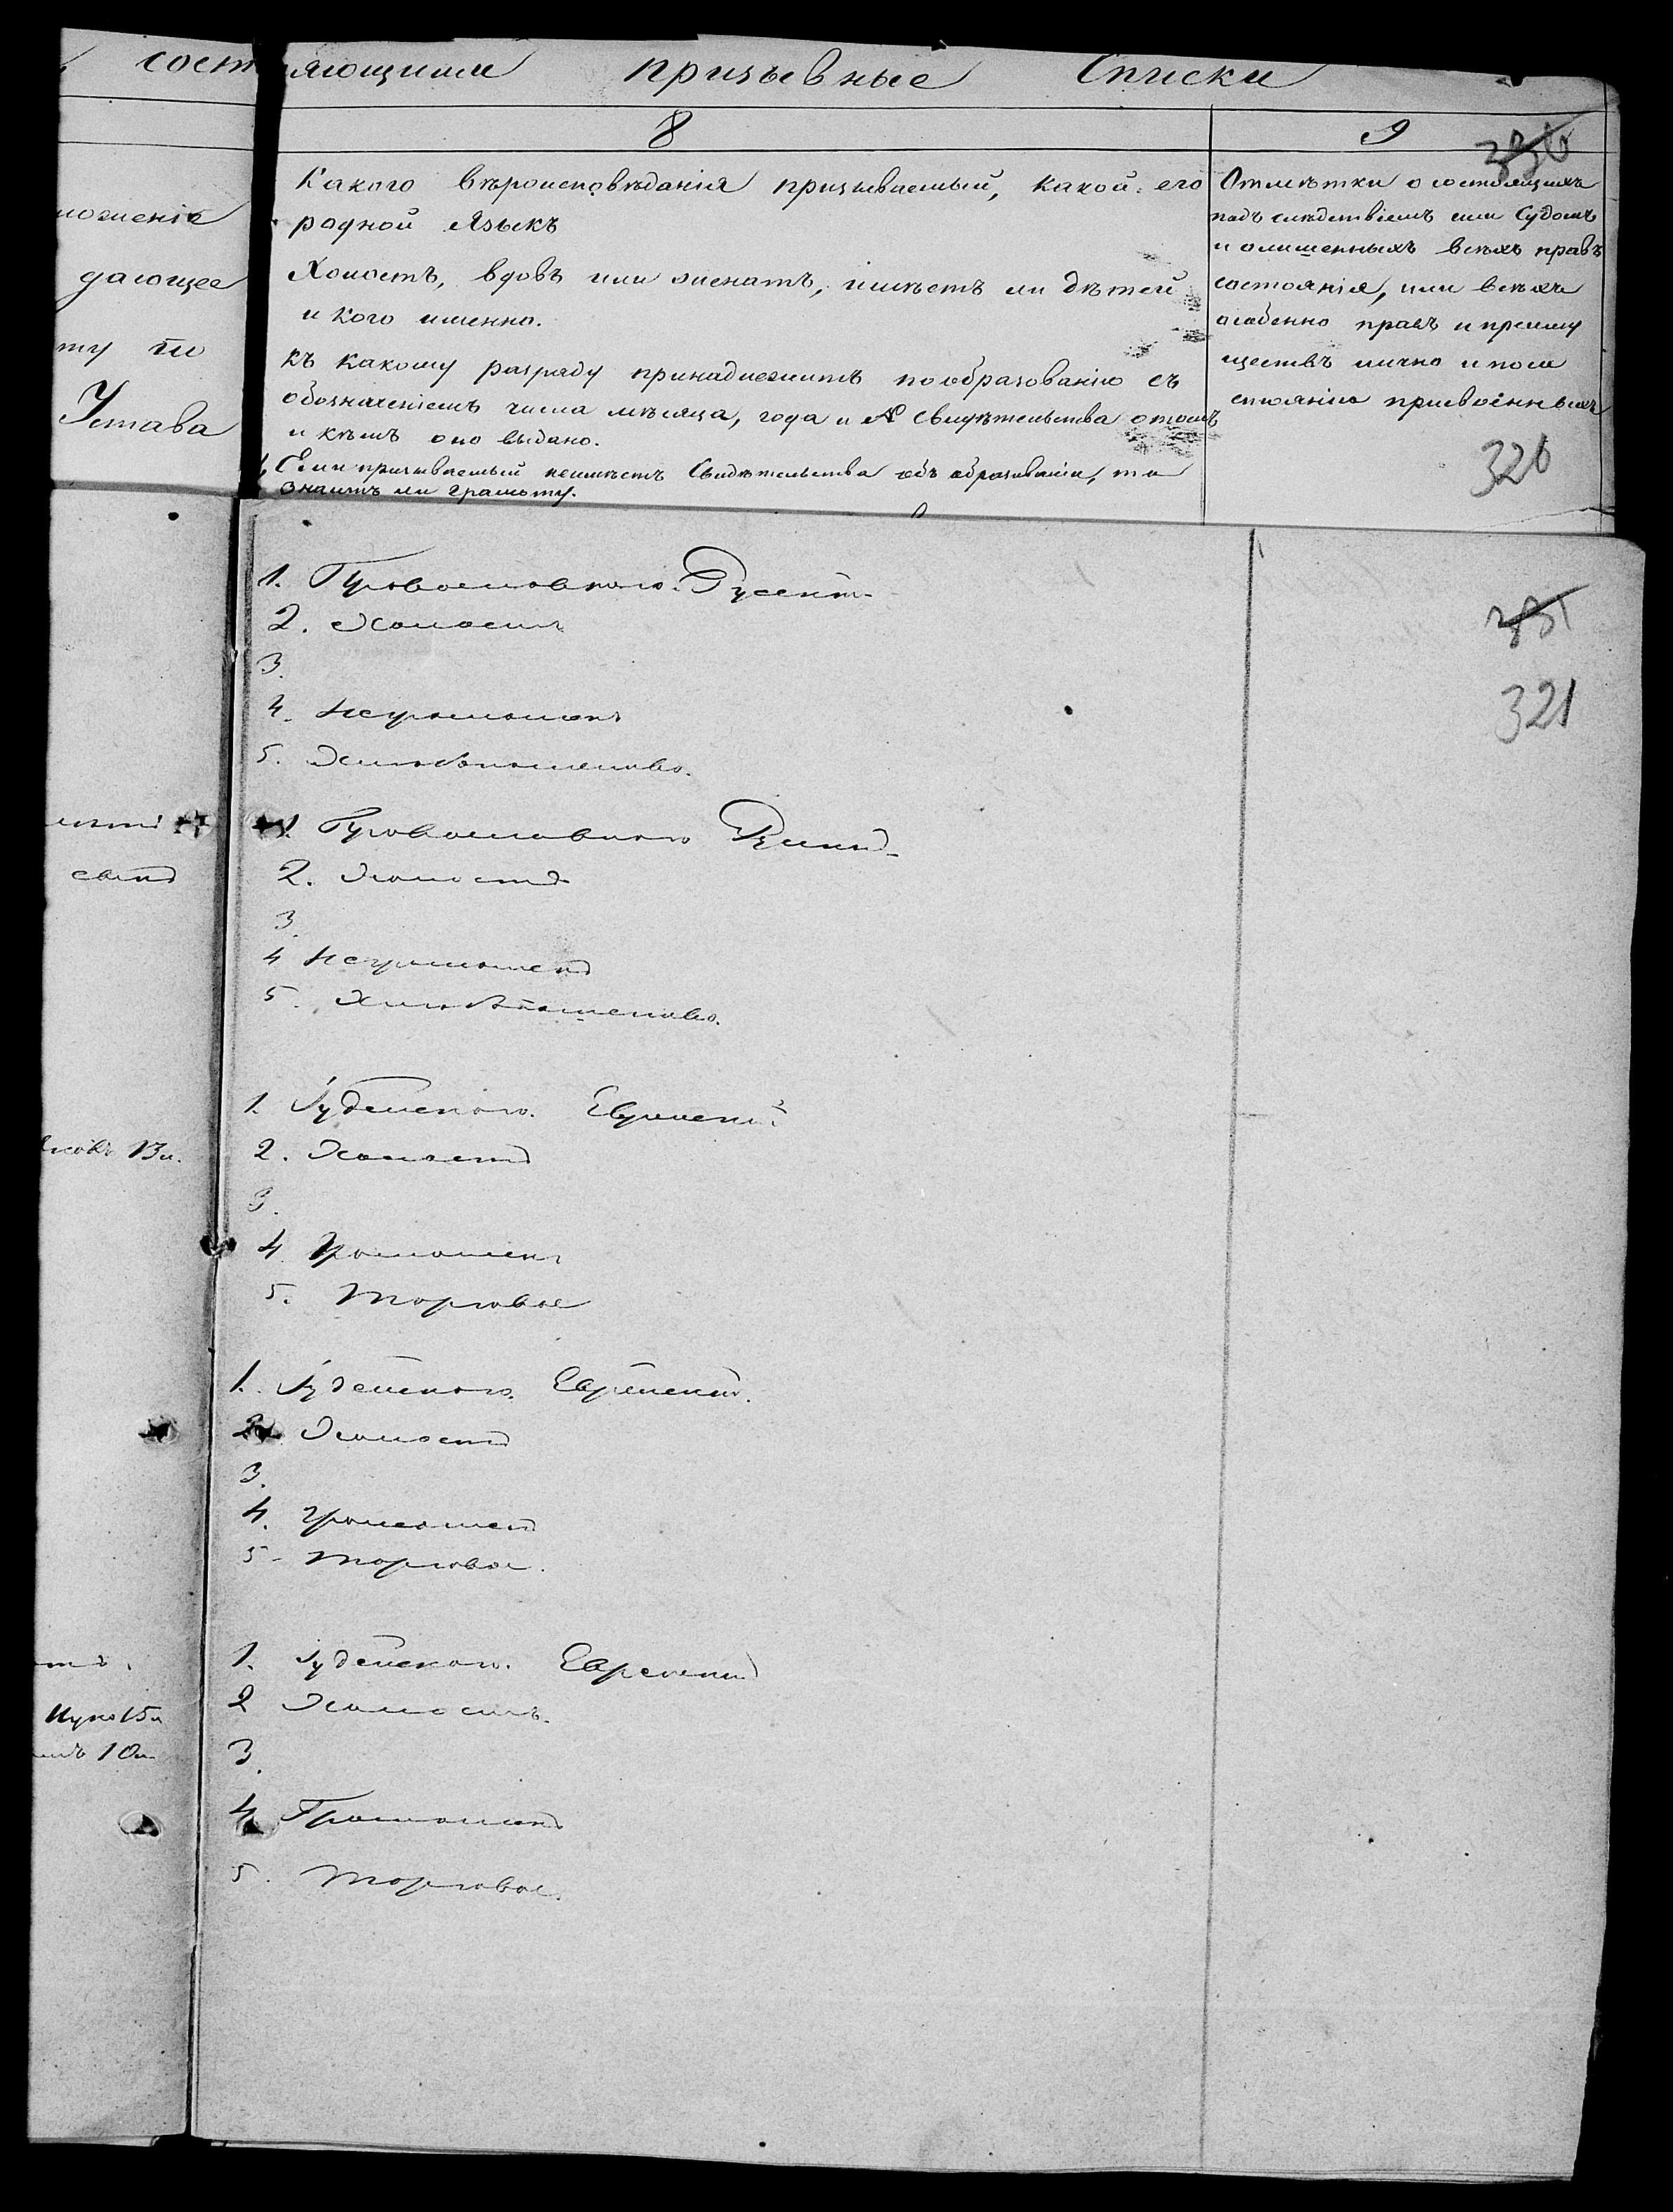 сост яющими призывные Списки
8
9
330
Какого вѣроисповѣданія призываемый, какой его
родной Языкъ
Холостъ, вдовъ или женатъ, имѣетъ ли дѣтей
и кого именно.
къ какому разряду принадлежитъ пообразованію съ
обозначеніемъ числа мѣсяца, года и № Свидѣтельства отомъ
и кѣмъ оно выдано.
Если призываемый неимѣетъ Свидѣтельства объ образованіи, то
знаитъ ли грамоту.
Отмѣтки о состоящихъ
подъ слѣдствіемъ или Судомъ
и олишенныхъ всѣхъ правъ
состоянія, или всѣхъ
особенно правъ и преиму
ществъ лично и посо
стоянію присвоенныхъ
320
ложенія
дающее
ту по
Устава
1. Православнаго. Русскій
2. Холостъ
3.
4. Неграмотенъ
5. Хлебопашество.
331
321
1. Православнаго Русскій
2. Холостъ
3.
4 Неграмотенъ
5. Хлебопашество.
1. Іудейскаго. Еврейскій
2. Холостъ
3.
4. Грамотенъ
5. Торговое
13 л.
1. Іудейскаго. Еврейскій.
2. Холостъ
3.
4. грамотенъ
5. Торговое.
1. Іудейскаго. Еврейскій
2 Холостъ.
3.
4. Грамотенъ
5. Торговое.
15 л
10 л